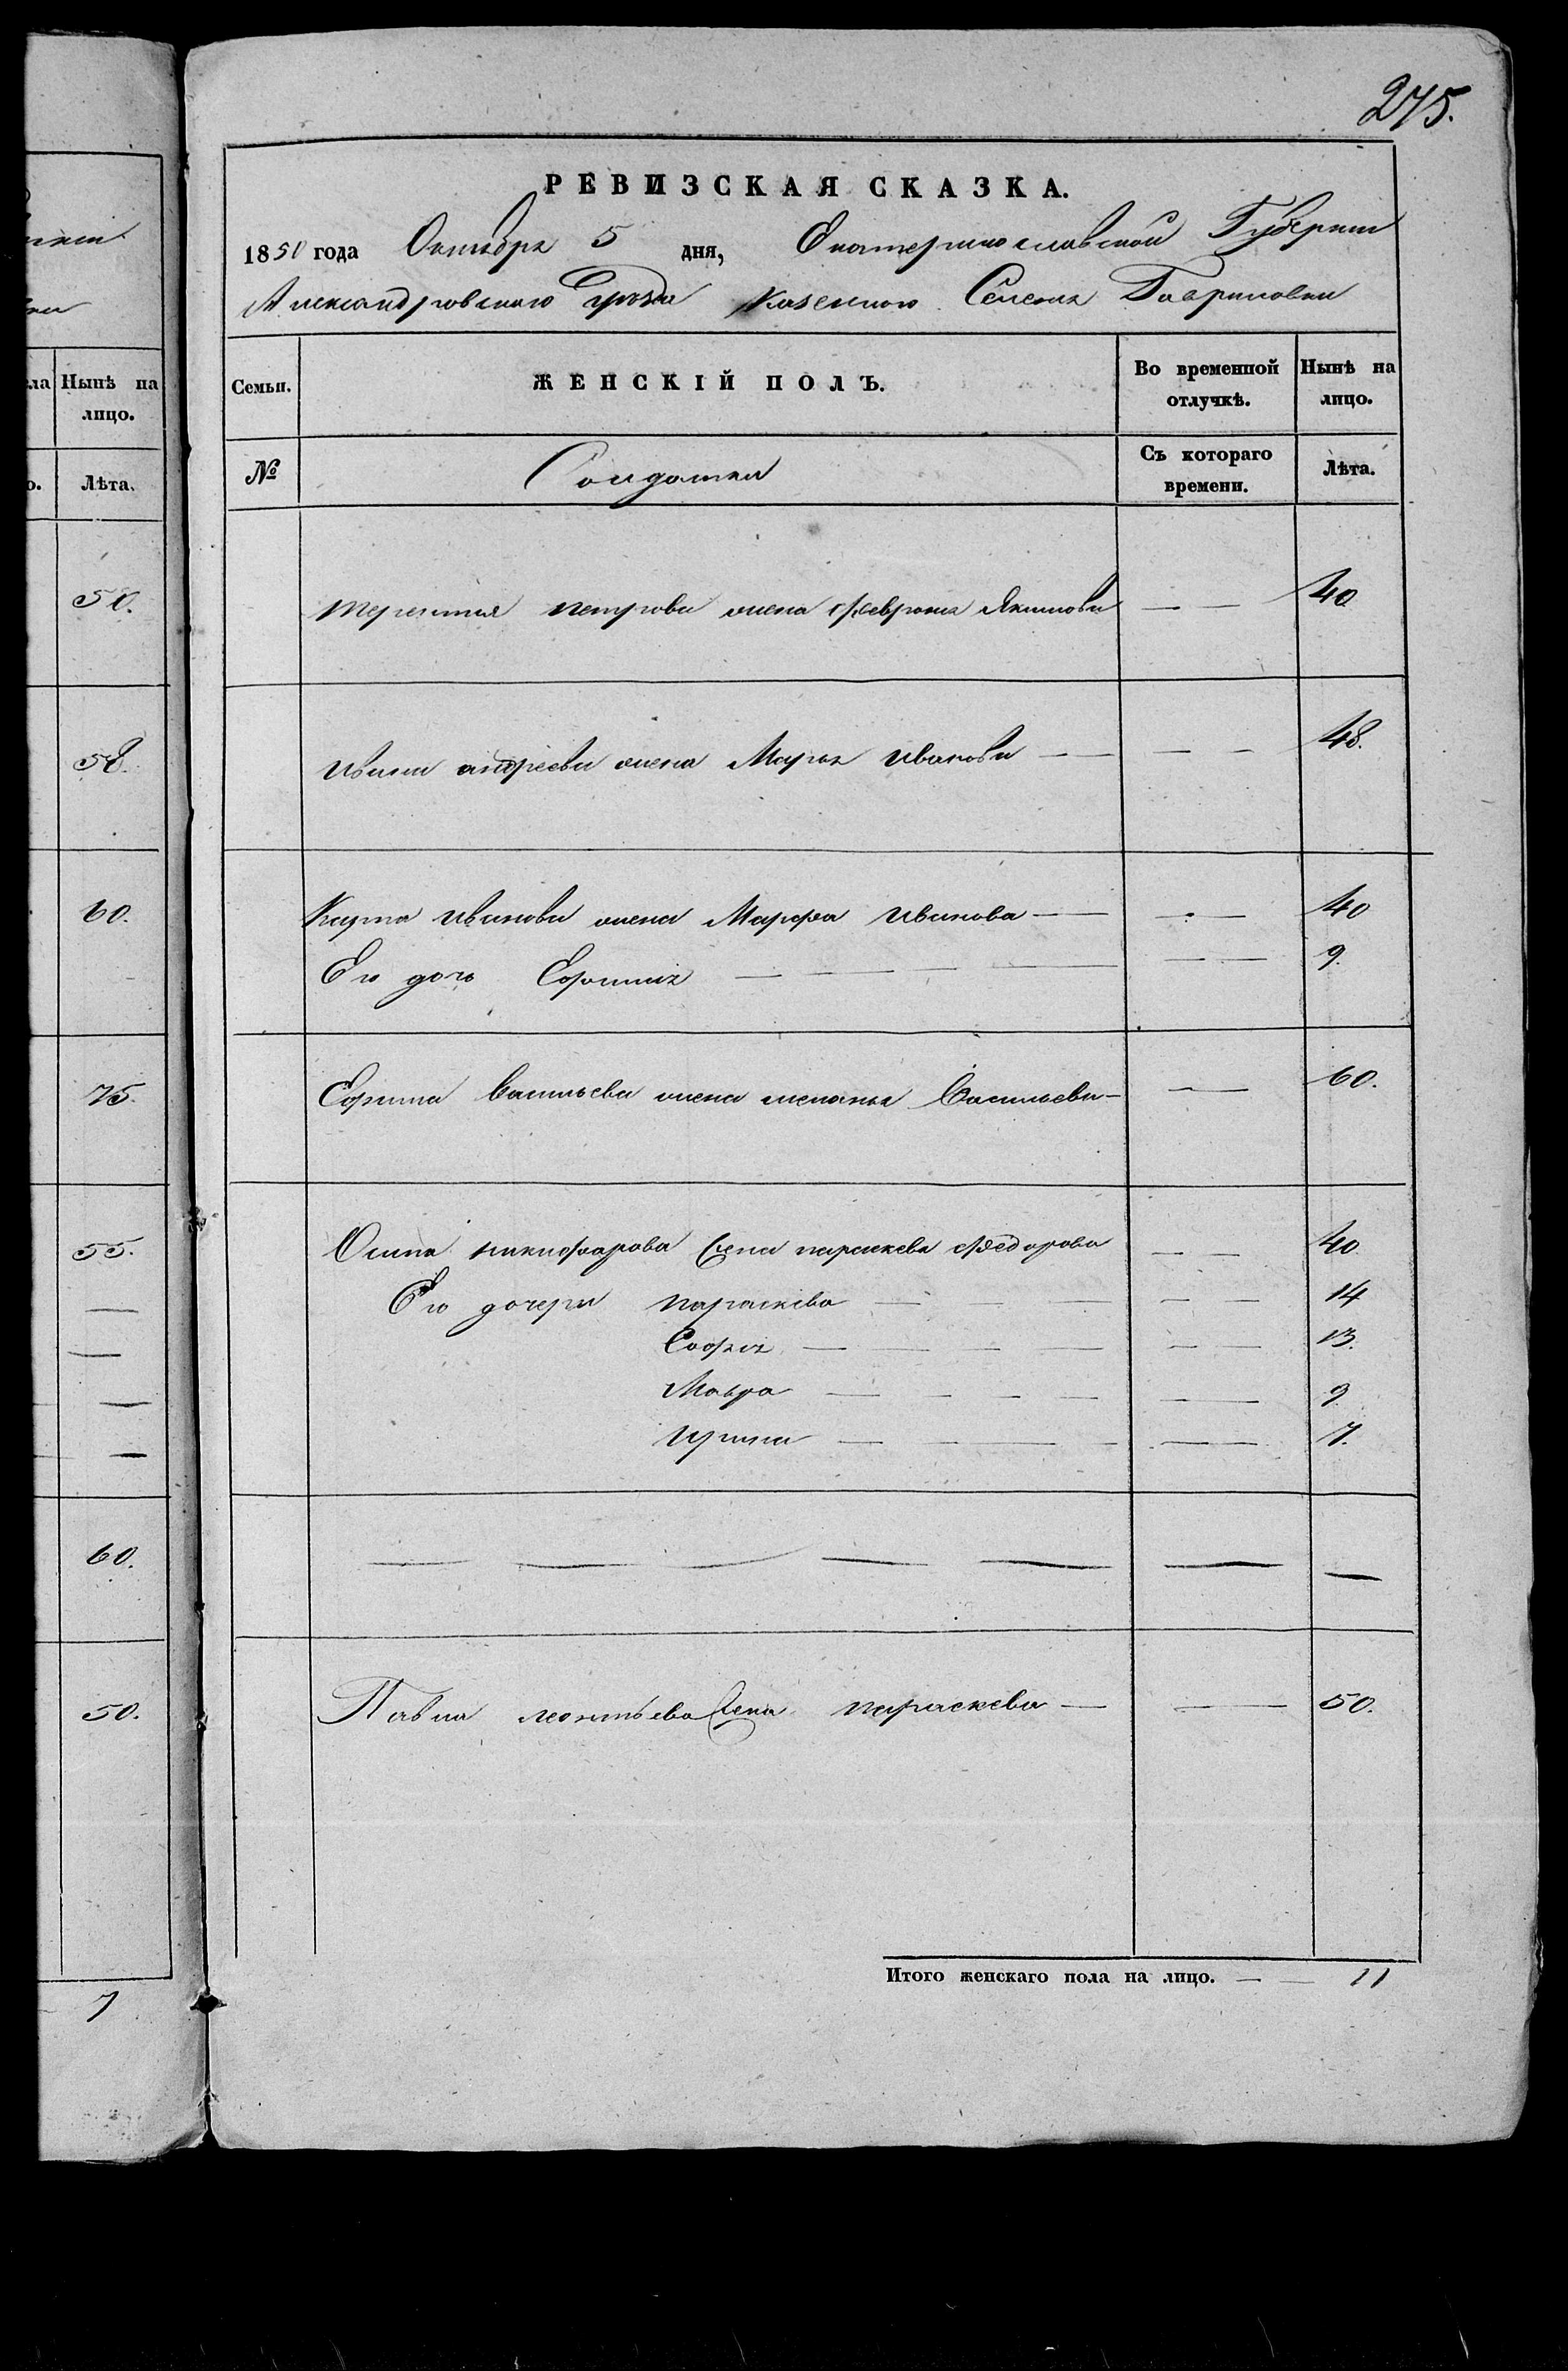 275.
РЕВИЗСКАЯ СКАЗКА.
1850 года Октября 5 дня, Екатеринославской Губернии
Александровского уезда Казенного Селения Гавриловки
Семьи. ЖЕНСКІЙ ПОЛЪ. Во временной отлучкѣ. Нынѣ на лицо.
№ Солдатки Съ котораго времени. Лѣта.
терентия петрова жена Феврония Якимова — — 40
Ивана андреева жена Марья Иванова — — — — 48.
Карпа Иванова жена Марфа Иванова — — — 40
Его дочь Ефимия — — — — — — 9.
Ефима Васильева жена меланья Васильева — — — 60.
Осипа никифарова жена параскева Федорова — — 40
Его дочери параскева — — — — — 14
София — — — — — — 13.
Мавра — — — — — — 9.
Ирина — — — — — — 7.
— — — — — — —
Павла леонтьева жена параскева — — — 50.
Итого женскаго пола на лицо. — — 11
Нынѣ на лицо.
Лѣта.
50.
58.
60.
75.
55.
—
—
—
—
60.
50.
7